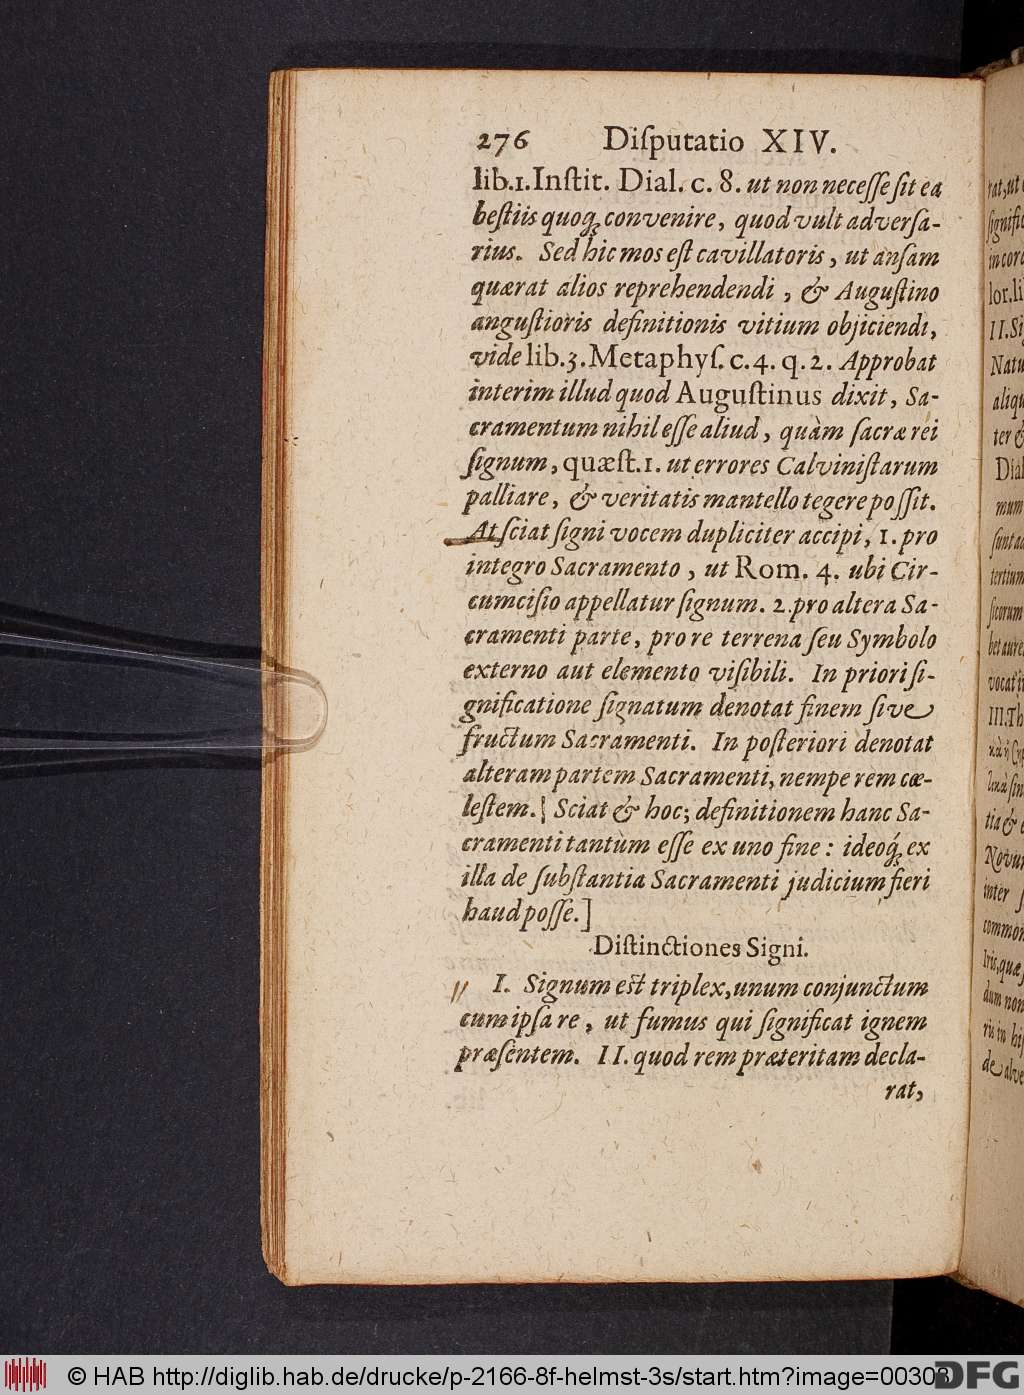 276 Diſputatio XIV.
lib.1.Inſtit. Dial. c. 8. ut non neceſſe ſit ea
beſtiis quoq́; convenire, quod vult adverſa-
rius. Sed hic mos eſt cavillatoris, ut anſam
quærat alios reprehendendi, & Auguſtino
anguſtioris definitionis vitium objiciendi,
vide lib.3. Metaphyſ. c. 4. q. 2. Approbat
interim illud quod Auguſtinus dixit, Sa-
cramentum nihil eſſe aliud, quàm ſacræ rei
ſignum, quæſt.1. ut errores Calviniſtarum
palliare, & veritatis mantello tegere poſſit.
At ſciat ſigni vocem dupliciter accipi, 1. pro
integro Sacramento, ut Rom. 4. ubi Cir-
cumciſio appellatur ſignum. 2. pro altera Sa-
cramenti parte, pro re terrena ſeu Symbolo
externo aut elemento viſibili. In priori ſi-
gnificatione ſignatum denotat finem ſive
fructum Sacramenti. In poſteriori denotat
alteram partem Sacramenti, nempe rem cœ-
leſtem. Sciat & hoc; definitionem hanc Sa-
cramenti tantùm eſſe ex uno fine: ideoq́; ex
illa de ſubſtantia Sacramenti judicium fieri
haud poſſe.]
Diſtinctiones Signi.
I. Signum eſt triplex, unum conjunctum
cum ipſa re, ut fumus qui ſignificat ignem
præſentem. II. quod rem præteritam decla-
rat,
© HAB http://diglib.hab.de/drucke/p-2166-8f-helmst-3s/start.htm?image=00303
DFG